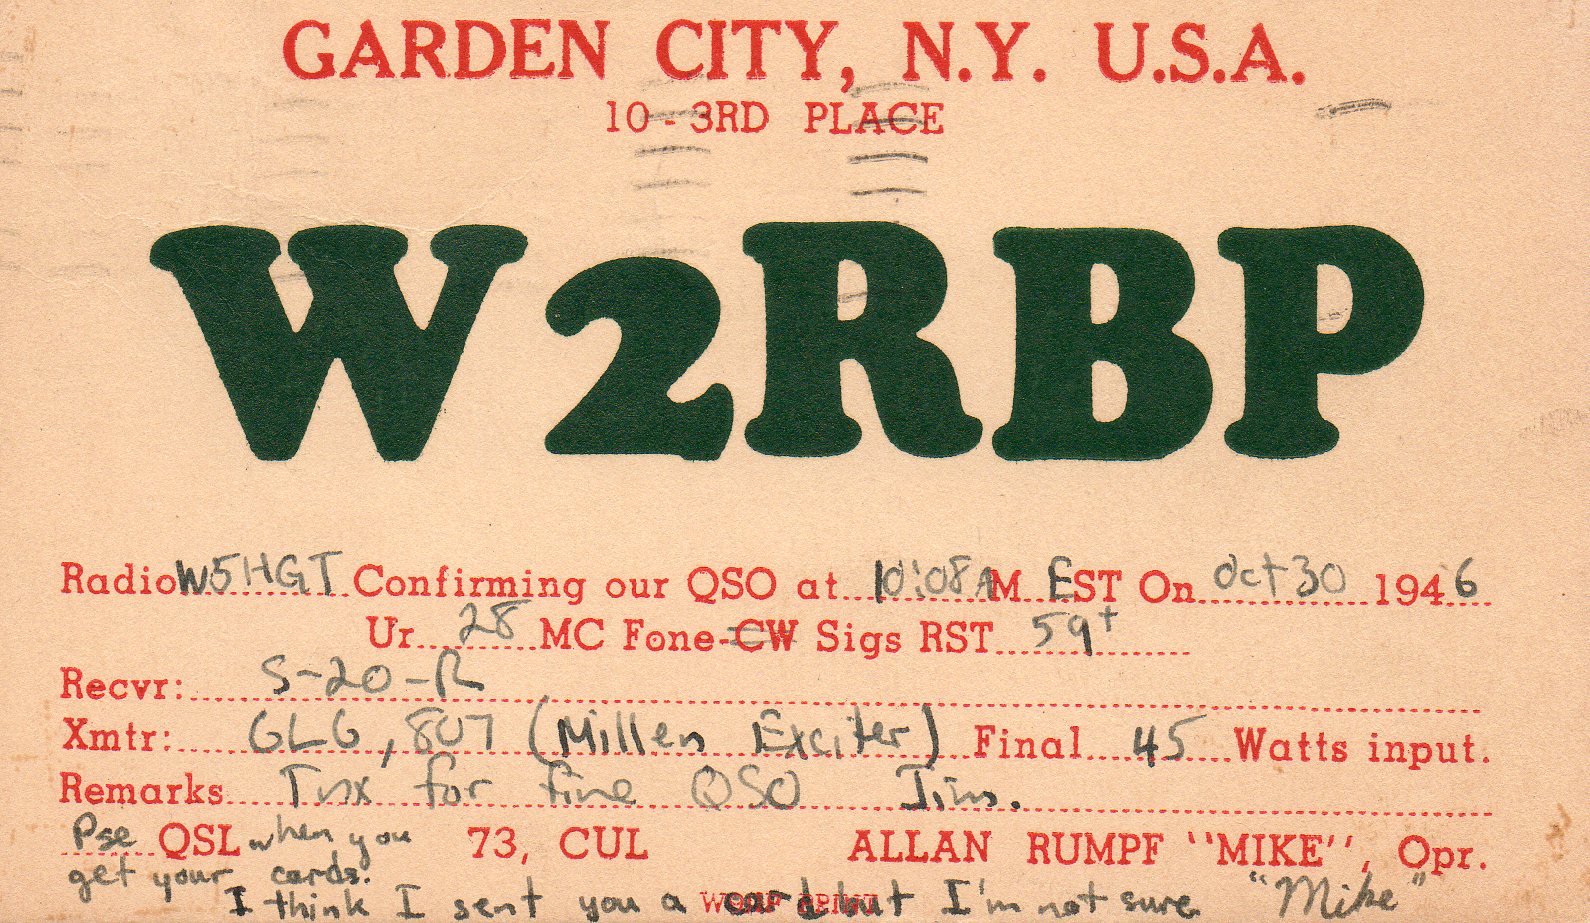 GARDEN CITY, N.Y. U.S.A.
10 - 3RD PLACE
W2RBP
Radio W5HGT Confirming our QSO at 10:08 AM EST On Oct 30 1946
Ur 28 MC Fone-CW Sigs RST 59+
Recvr: S-20-R
Xmtr: 6L6, 807 (Millen Exciter) Final 45 Watts input.
Remarks Tnx for fine QSO Jim.
Pse QSL when you 73, CUL ALLAN RUMPF "MIKE", Opr.
get your cards.
I think I sent you a card but I'm not sure "Mike"